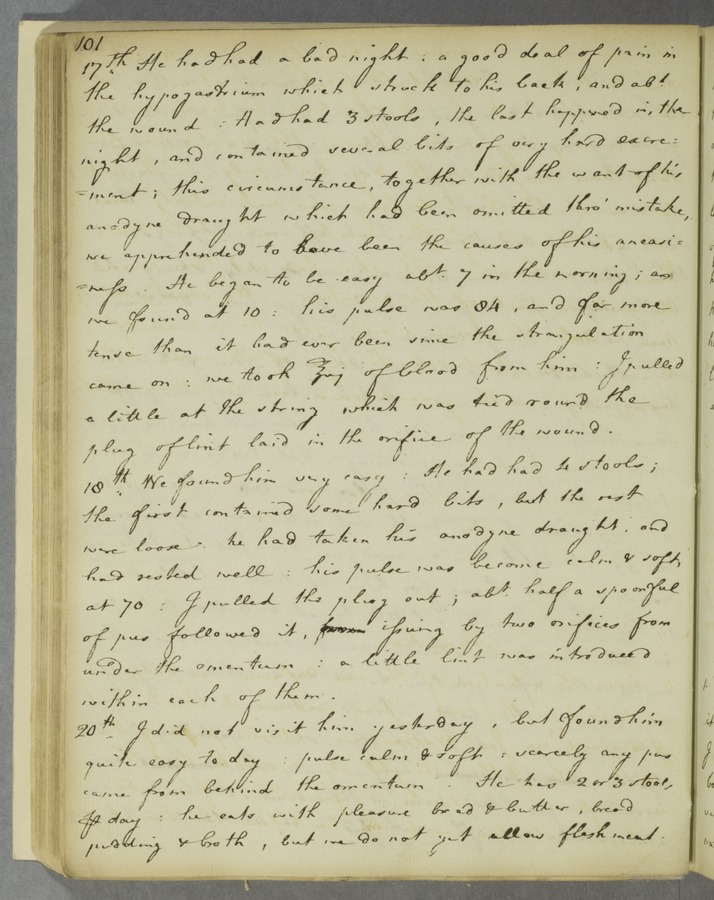 101
17th He had had a bad night : a good deal of pain in
the hypogastrium which struck to his back, and abt
the wound : Had had 3 stools, the last happened in the
night, and contained several bits of very hard excre=
=ment ; this circumstance, together with the want of his
anodyne draught which had been omitted thro' mistake,
we apprehended to have been the causes of his uneasi=
=ness. He began to be easy abt. 7 in the morning ; as
we found at 10 : his pulse was 84, and far more
tense than it had ever been since the strangulation
came on : we took ℥vj of blood from him : I pulled
a little at the string which was tied round the
plug of lint laid in the orifice of the wound.
18th We found him very easy : He had had 4 stools ;
the first contained some hard bits, but the rest
were loose : he had taken his anodyne draught, and
had rested well : his pulse was become calm & soft,
at 70 : I pulled the plug out ; abt. half a spoonful
of pus followed it, issuing by two orifices from
under the omentum : a little lint was introduced
within each of them.
20th I did not visit him yesterday, but found him
quite easy to day : pulse calm & soft : scarcely any pus
came from behind the omentum. He has 2 or 3 stools
℔ day : he eats with pleasure bread & butter, bread
pudding & broth, but we do not yet allow flesh meat.